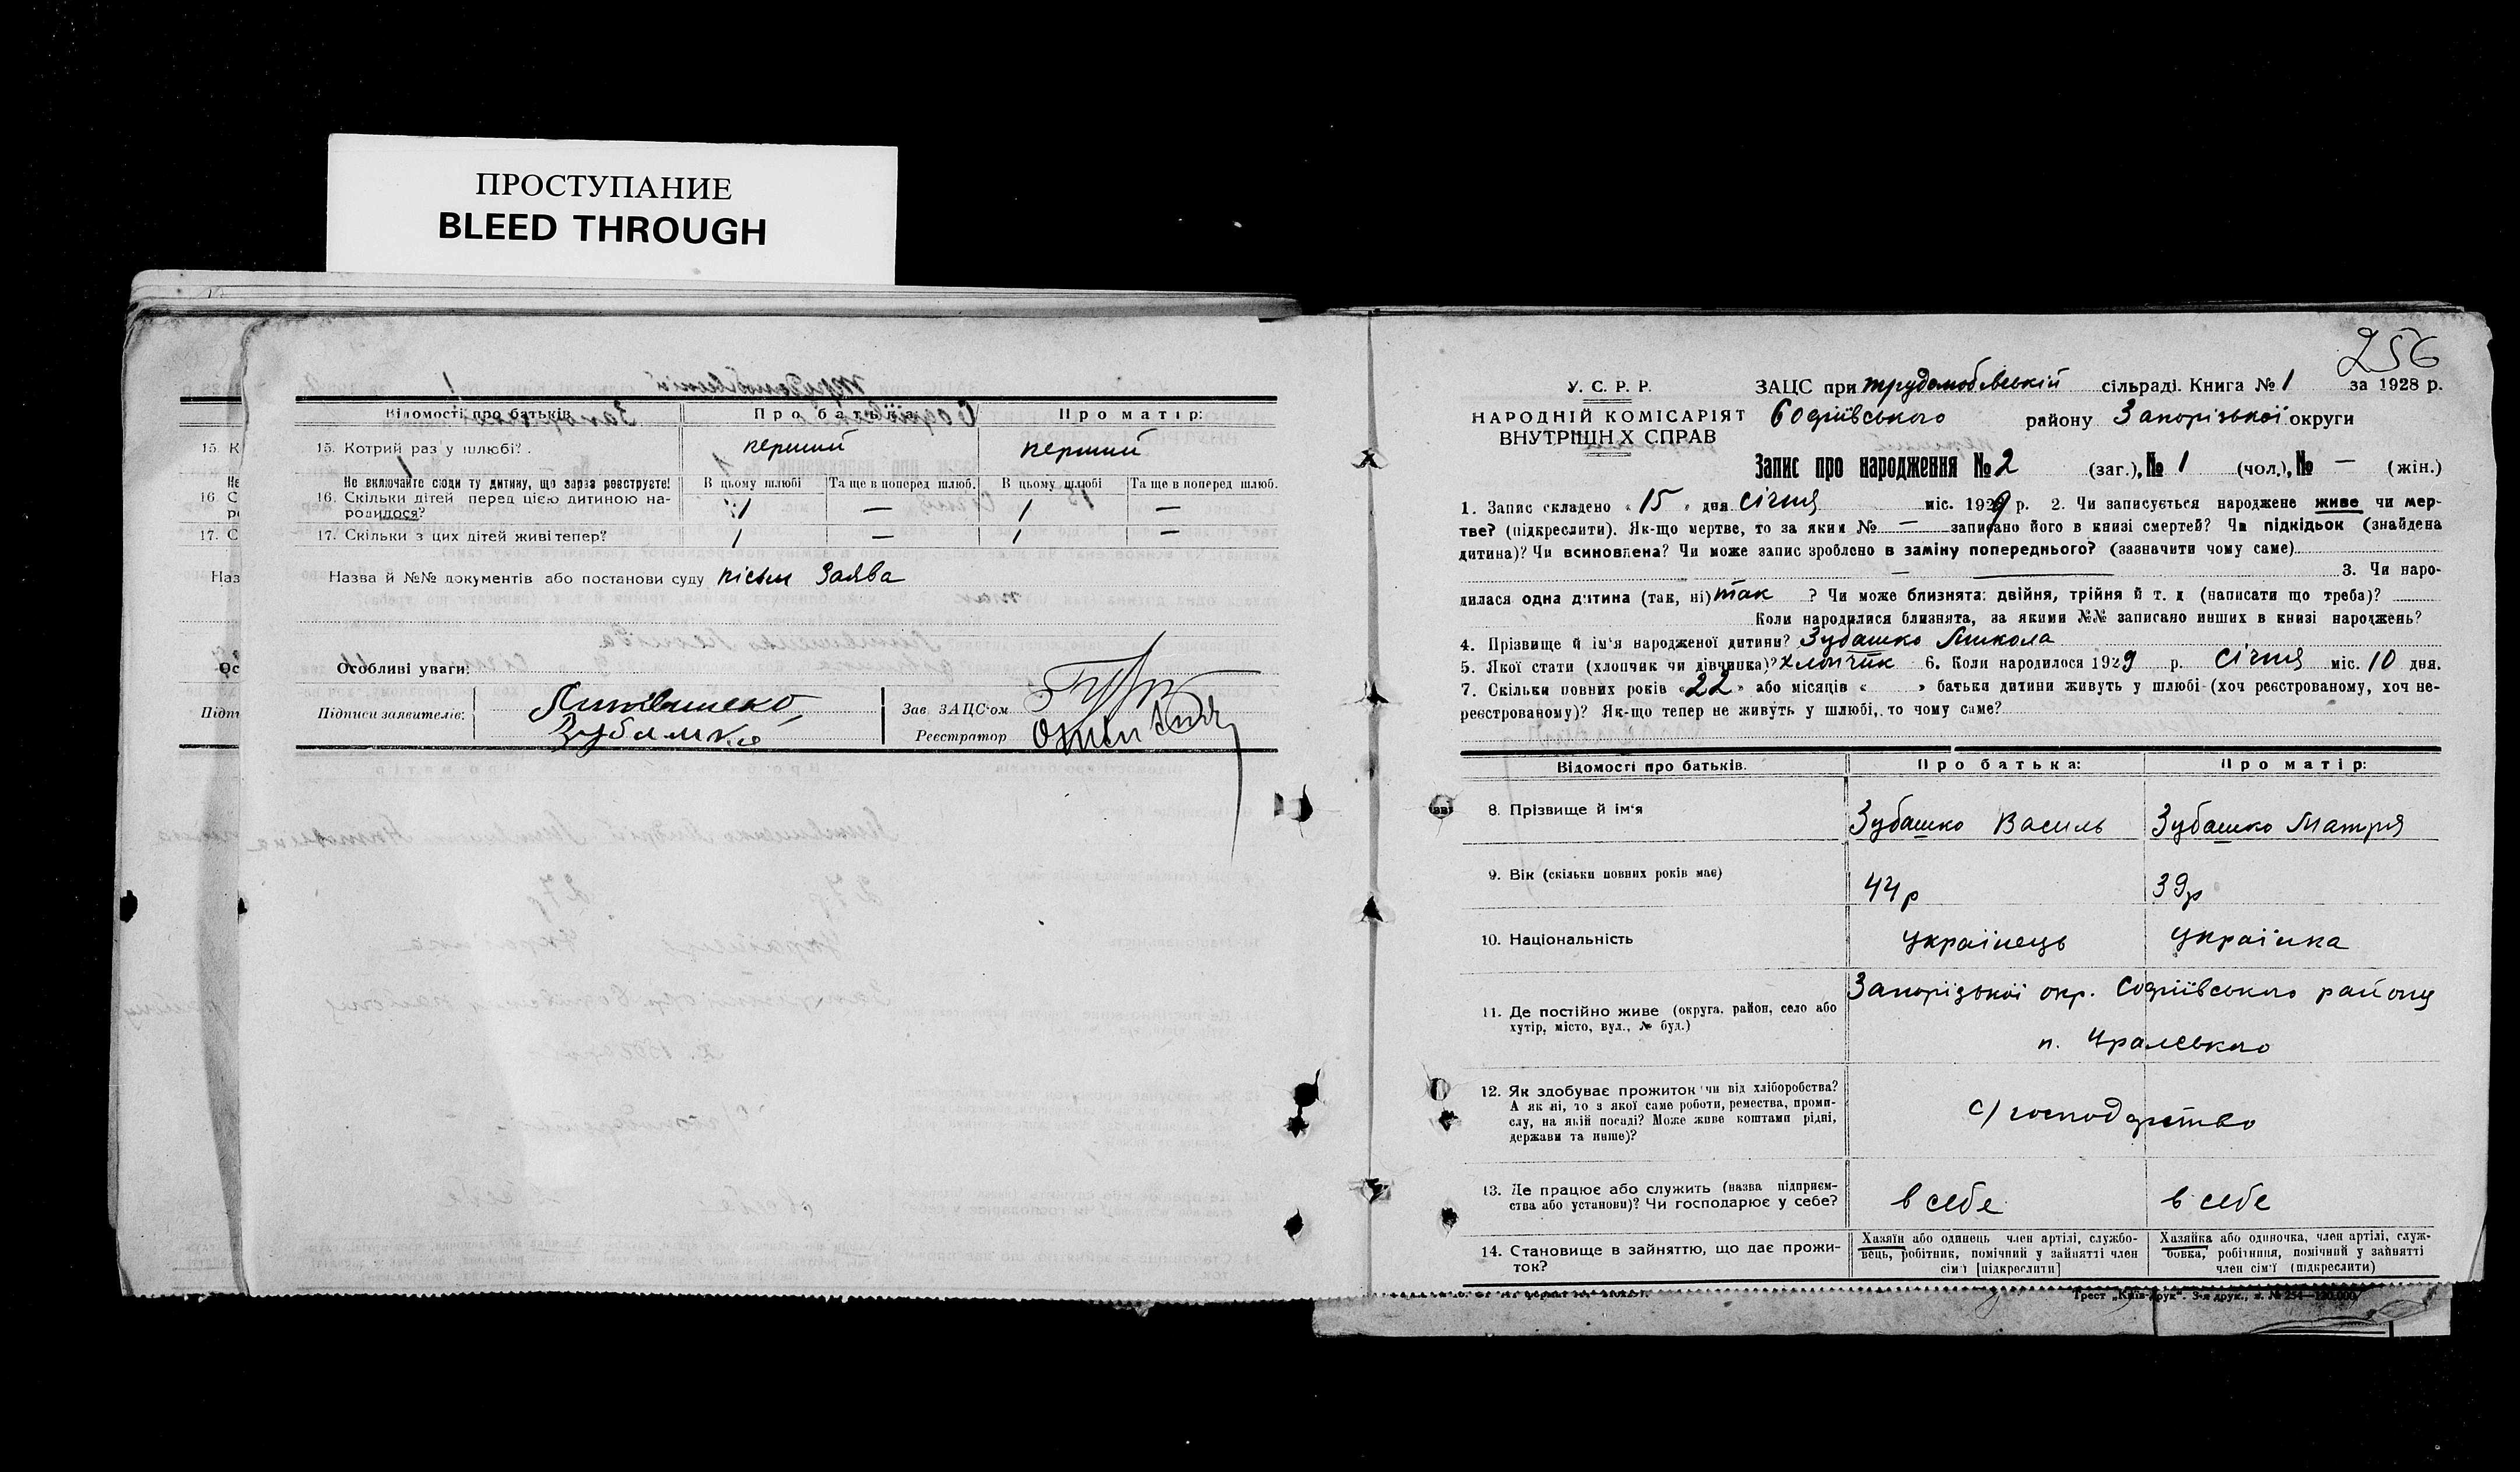 ПРОСТУПАНИЕ
BLEED THROUGH
Відомості про батьків
Про батька:
Про матір:
15. К
15. Котрий раз у шлюбі?
перший
перший
Не
Не включайте сюди ту дитину, що зараз реєструєте!
В цьому шлюбі
Та ще в поперед шлюб.
В цьому шлюбі
Та ще в поперед шлюб.
16 С
16. Скільки дітей перед цією дитиною на-
родилося?
1
—
1
—
17. С
17. Скільки з цих дітей живі тепер?
1
—
1
—
Наз
Назва й №№ документів або постанови суду пісьм Заява
Ос
Особливі уваги:
Підп
Підписи заявителів:
Литвиненко
Зубашко
Зав. ЗАЦС'ом
Реєстратор
256
У. С. Р. Р.
НАРОДНІЙ КОМІСАРІЯТ
ВНУТРІШН Х СПРАВ
ЗАЦС при трудолюбівській сільраді. Книга № 1 за 1928 р.
Софіївського району Запорізької округи
Запис про народження № 2 (заг.), № 1 (чол.), № — (жін.)
1. Запис складено « 15 » дня січня міс. 1929 р. 2. Чи записується народжене живе чи мер-
тве? (підкреслити). Як-що мертве, то за яким № — записано його в книзі смертей? Чи підкідьок (знайдена
дитина)? Чи всиновлена? Чи може запис зроблено в заміну попереднього? (зазначити чому саме)
— 3. Чи наро-
дилася одна дитина (так, ні) так ? Чи може близнята: двійня, трійня й т. д (написати що треба)?
Коли народилися близнята, за якими №№ записано инших в книзі народжень?
4. Прізвище й ім'я народженої дитини? Зубашко Микола
5. Якої стати (хлопчик чи дівчинка)? хлопчик 6. Коли народилося 1929 р. Січня міс. 10 дня.
7. Скільки повних років «22» або місяців « » батьки дитини живуть у шлюбі (хоч реєстрованому, хоч не-
реєстрованому)? Як-що тепер не живуть у шлюбі, то чому саме?
Відомості про батьків.
Про батька:
Про матір:
8. Прізвище й ім'я
Зубашко Василь
Зубашко Матря
9. Вік (скільки повних років має)
44р
39р
10. Національність
Українець
Українка
11. Де постійно живе (округа, район, село або
хутір, місто, вул., № буд.)
Запорізької окр. Софіївського району
п. Уралського
12. Як здобуває прожиток чи від хліборобства?
А як ні, то з якої саме роботи, ремества, проми-
слу, на якій посаді? Може живе коштами рідні,
держави та инше)?
с/господарство
13. Де працює або служить (назва підприєм-
ства або установи)? Чи господарює у себе?
в себе
в себе
14. Становище в зайняттю, що дає прожи-
ток?
Хазяїн або одинець член артілі, службо-
вець, робітник, помічний у зайнятті член
сім'ї [підкреслити]
Хазяйка або одиночка, член артілі, служ-
бовка, робітниця, помічний у зайнятті
член сім'ї (підкреслити)
Трест „Київ-Друк". 3-я друк., з. № 254—120.000